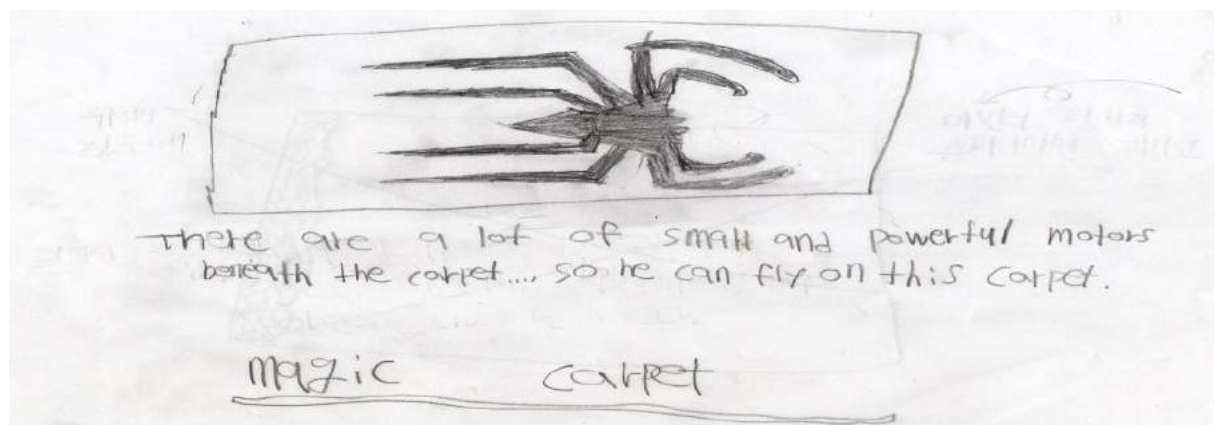 There are a lot of small and powerful motors
beneath the carpet.... so he can fly on this carpet.
magic carpet